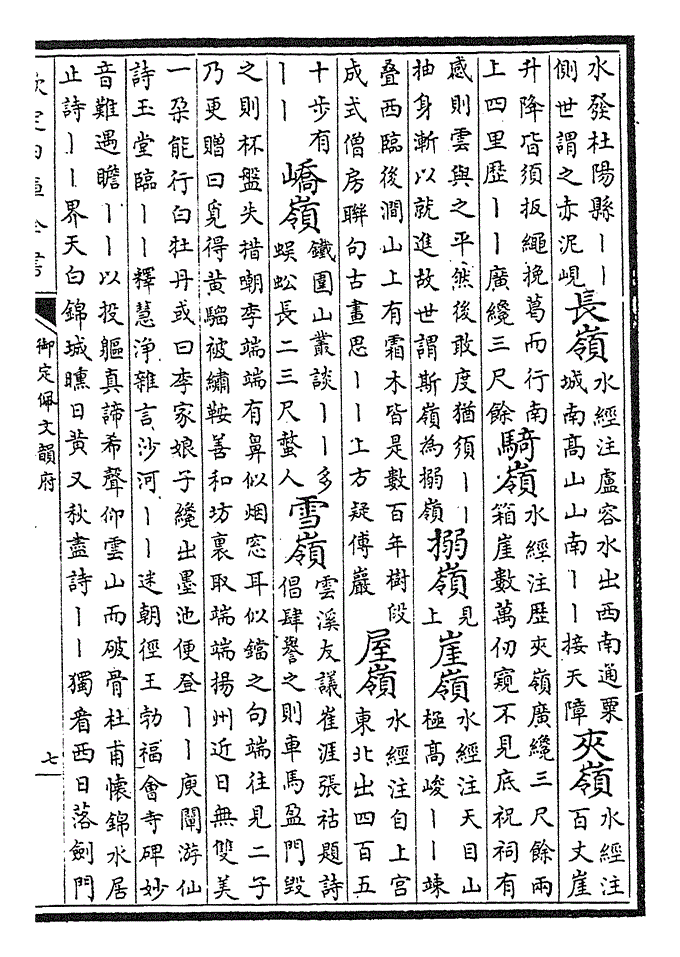 水發杜陽縣丨丨
側世謂之赤泥峴
長嶺
水經注盧容水出西南通粟
城南高山山南丨丨接天障
夾嶺
水經注
百丈崖
升降皆須扳繩挽葛而行南
上四里歴丨丨廣纔三尺餘
騎嶺
水經注歴夾嶺廣纔三尺餘兩
箱崖數萬仞窺不見底祝祠有
感則雲與之平然後敢度猶須丨丨
抽身漸以就進故世謂斯嶺為搦嶺
搦嶺
見
上
崖嶺
水經注天目山
極高峻丨丨竦
疊西臨後澗山上有霜木皆是數百年樹段
成式僧房聯句古畫思丨丨上方疑傅巖
屋嶺
水經注自上宫
東北出四百五
十步有
丨丨
嶠嶺
鐵圍山叢談丨丨多
蜈蚣長二三尺螫人
雪嶺
雲溪友議崔涯張祜題詩
倡肆譽之則車馬盈門毁
之則杯盤失措嘲李端端有鼻似烟窓耳似鐺之句端往見二子
乃更贈曰覓得黄騮被繡鞍善和坊裏取端端揚州近日無雙美
一朶能行白牡丹或曰李家娘子纔出墨池便登丨丨庾闡游仙
詩玉堂臨丨丨釋慧浄雜言沙河丨丨迷朝徑王勃福會寺碑妙
音難遇瞻丨丨以投軀真諦希聲仰雲山而破骨杜甫懷錦水居
止詩丨丨界天白錦城曛日黄又秋盡詩丨丨獨看西日落劍門
欽定四庫全書
御定佩文韻府
七